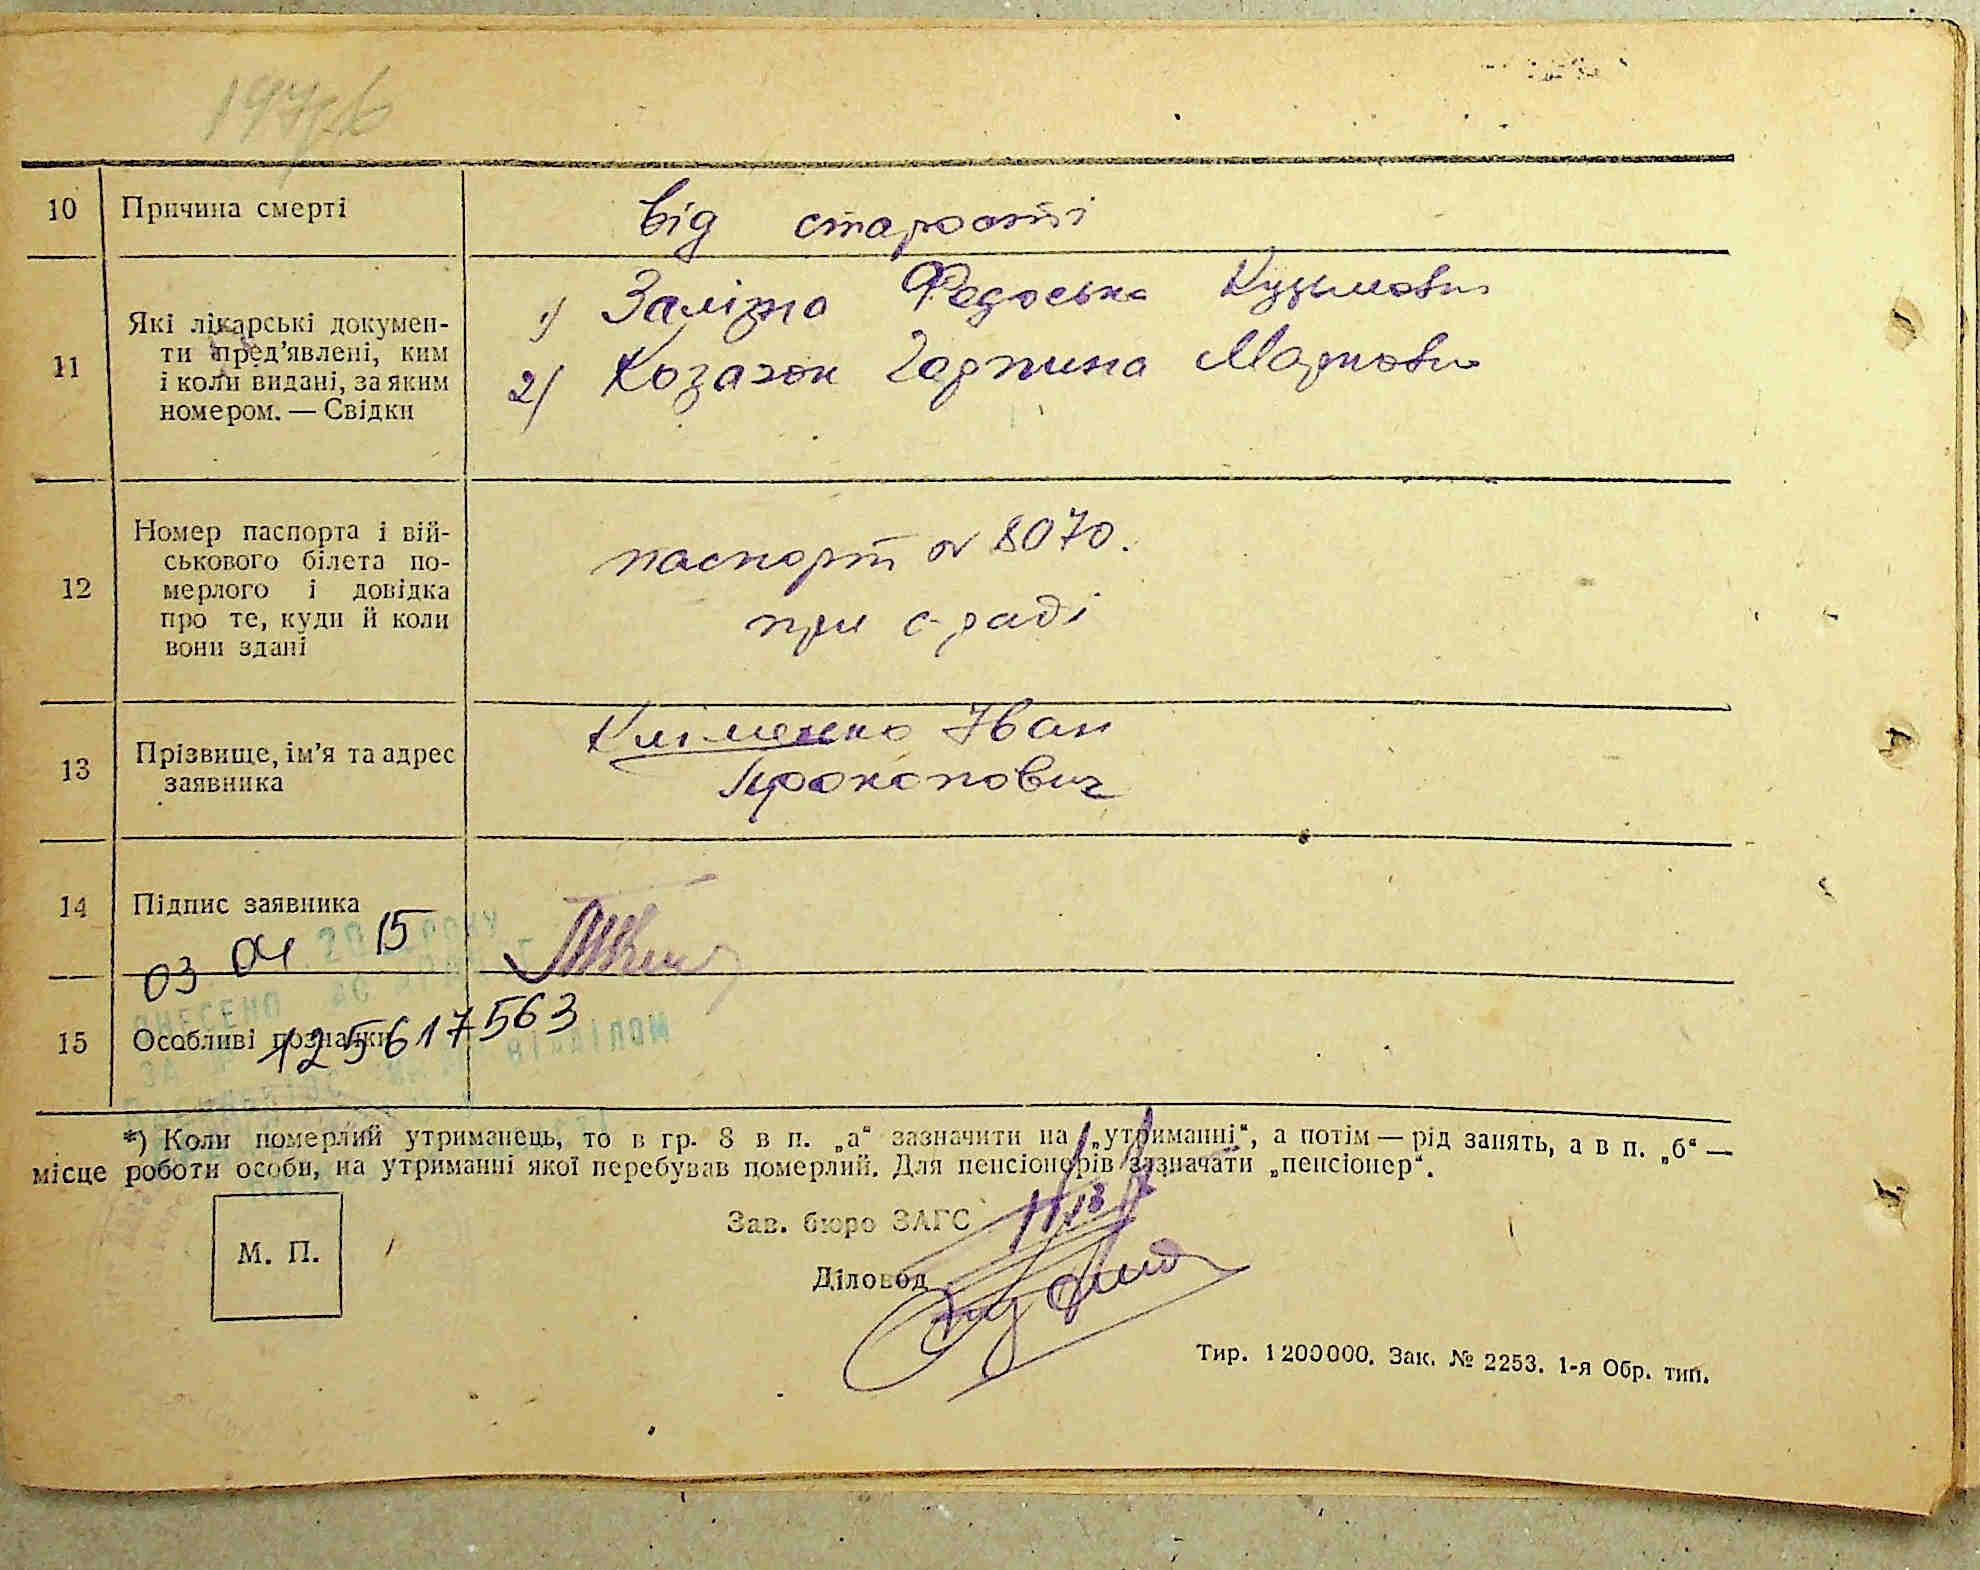 10 Причина смерті від старости
11 Які лікарські докумен-
ти пред’явлені, ким
і коли видані, за яким
номером. — Свідки
1) Залізно Федоська Кузьмовн
2) Козачок Гарпина Марковн
12 Номер паспорта і вій-
ськового білета по-
мерлого і довідка
про те, куди й коли
вони здані
паспорт № 8070.
при с-раді
13 Прізвище, ім’я та адрес
заявника
Кліменко Іван
Прокопович
14 Підпис заявника
03 04 2015 РОКУ
ВНЕСЕНО ДО
15 Особливі познатки
125617563
ЗА №
ВІДДІЛОМ
*) Коли померлий утриманець, то в гр. 8 в п. „а“ зазначити на „утриманні“, а потім — рід занять, а в п. „б“ —
місце роботи особи, на утриманні якої перебував померлий. Для пенсіонерів зазначати „пенсіонер“.
Зав. бюро ЗАГС
М. П.
Діловод
Тир. 1200000. Зак. № 2253. 1-я Обр. тип.